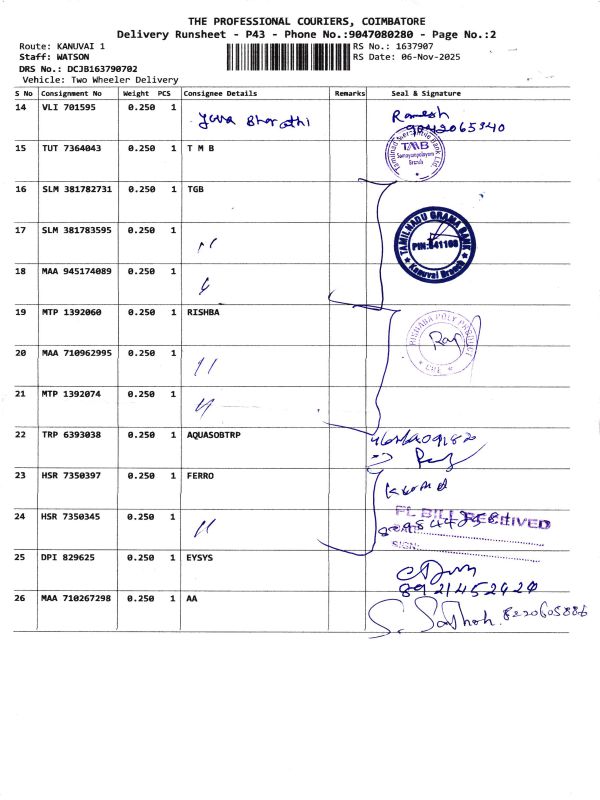 THE PROFESSIONAL COURIERS, COIMBATORE
Delivery Runsheet - P43 - Phone No.:9047080280 - Page No.:2
Route: KANUVAI 1
RS No.: 1637907
Staff: WATSON
RS Date: 06-Nov-2025
DRS No.: DCJB163790702
Vehicle: Two Wheeler Delivery
S No Consignment No Weight PCS Consignee Details Remarks Seal & Signature
14 VLI 701595 0.250 1 Yuva Bharathi Ramesh
9042065340
15 TUT 7364043 0.250 1 T M B
TMB
Branch
16 SLM 381782731 0.250 1 TGB
TAMILNADU GRAMA BANK
PIN:641108
Kanuvai Branch
17 SLM 381783595 0.250 1 "
18 MAA 945174089 0.250 1 "
19 MTP 1392060 0.250 1 RISHBA
RISHABA POLY PRODUCT
CBE
Raj
20 MAA 710962995 0.250 1 "
21 MTP 1392074 0.250 1 "
22 TRP 6393038 0.250 1 AQUASOBTRP
23 HSR 7350397 0.250 1 FERRO
24 HSR 7350345 0.250 1 "
PL BILL RECEIVED
DATE:
SIGN:
25 DPI 829625 0.250 1 EYSYS
8921452920
26 MAA 710267298 0.250 1 AA S. Santhosh. 8220605886